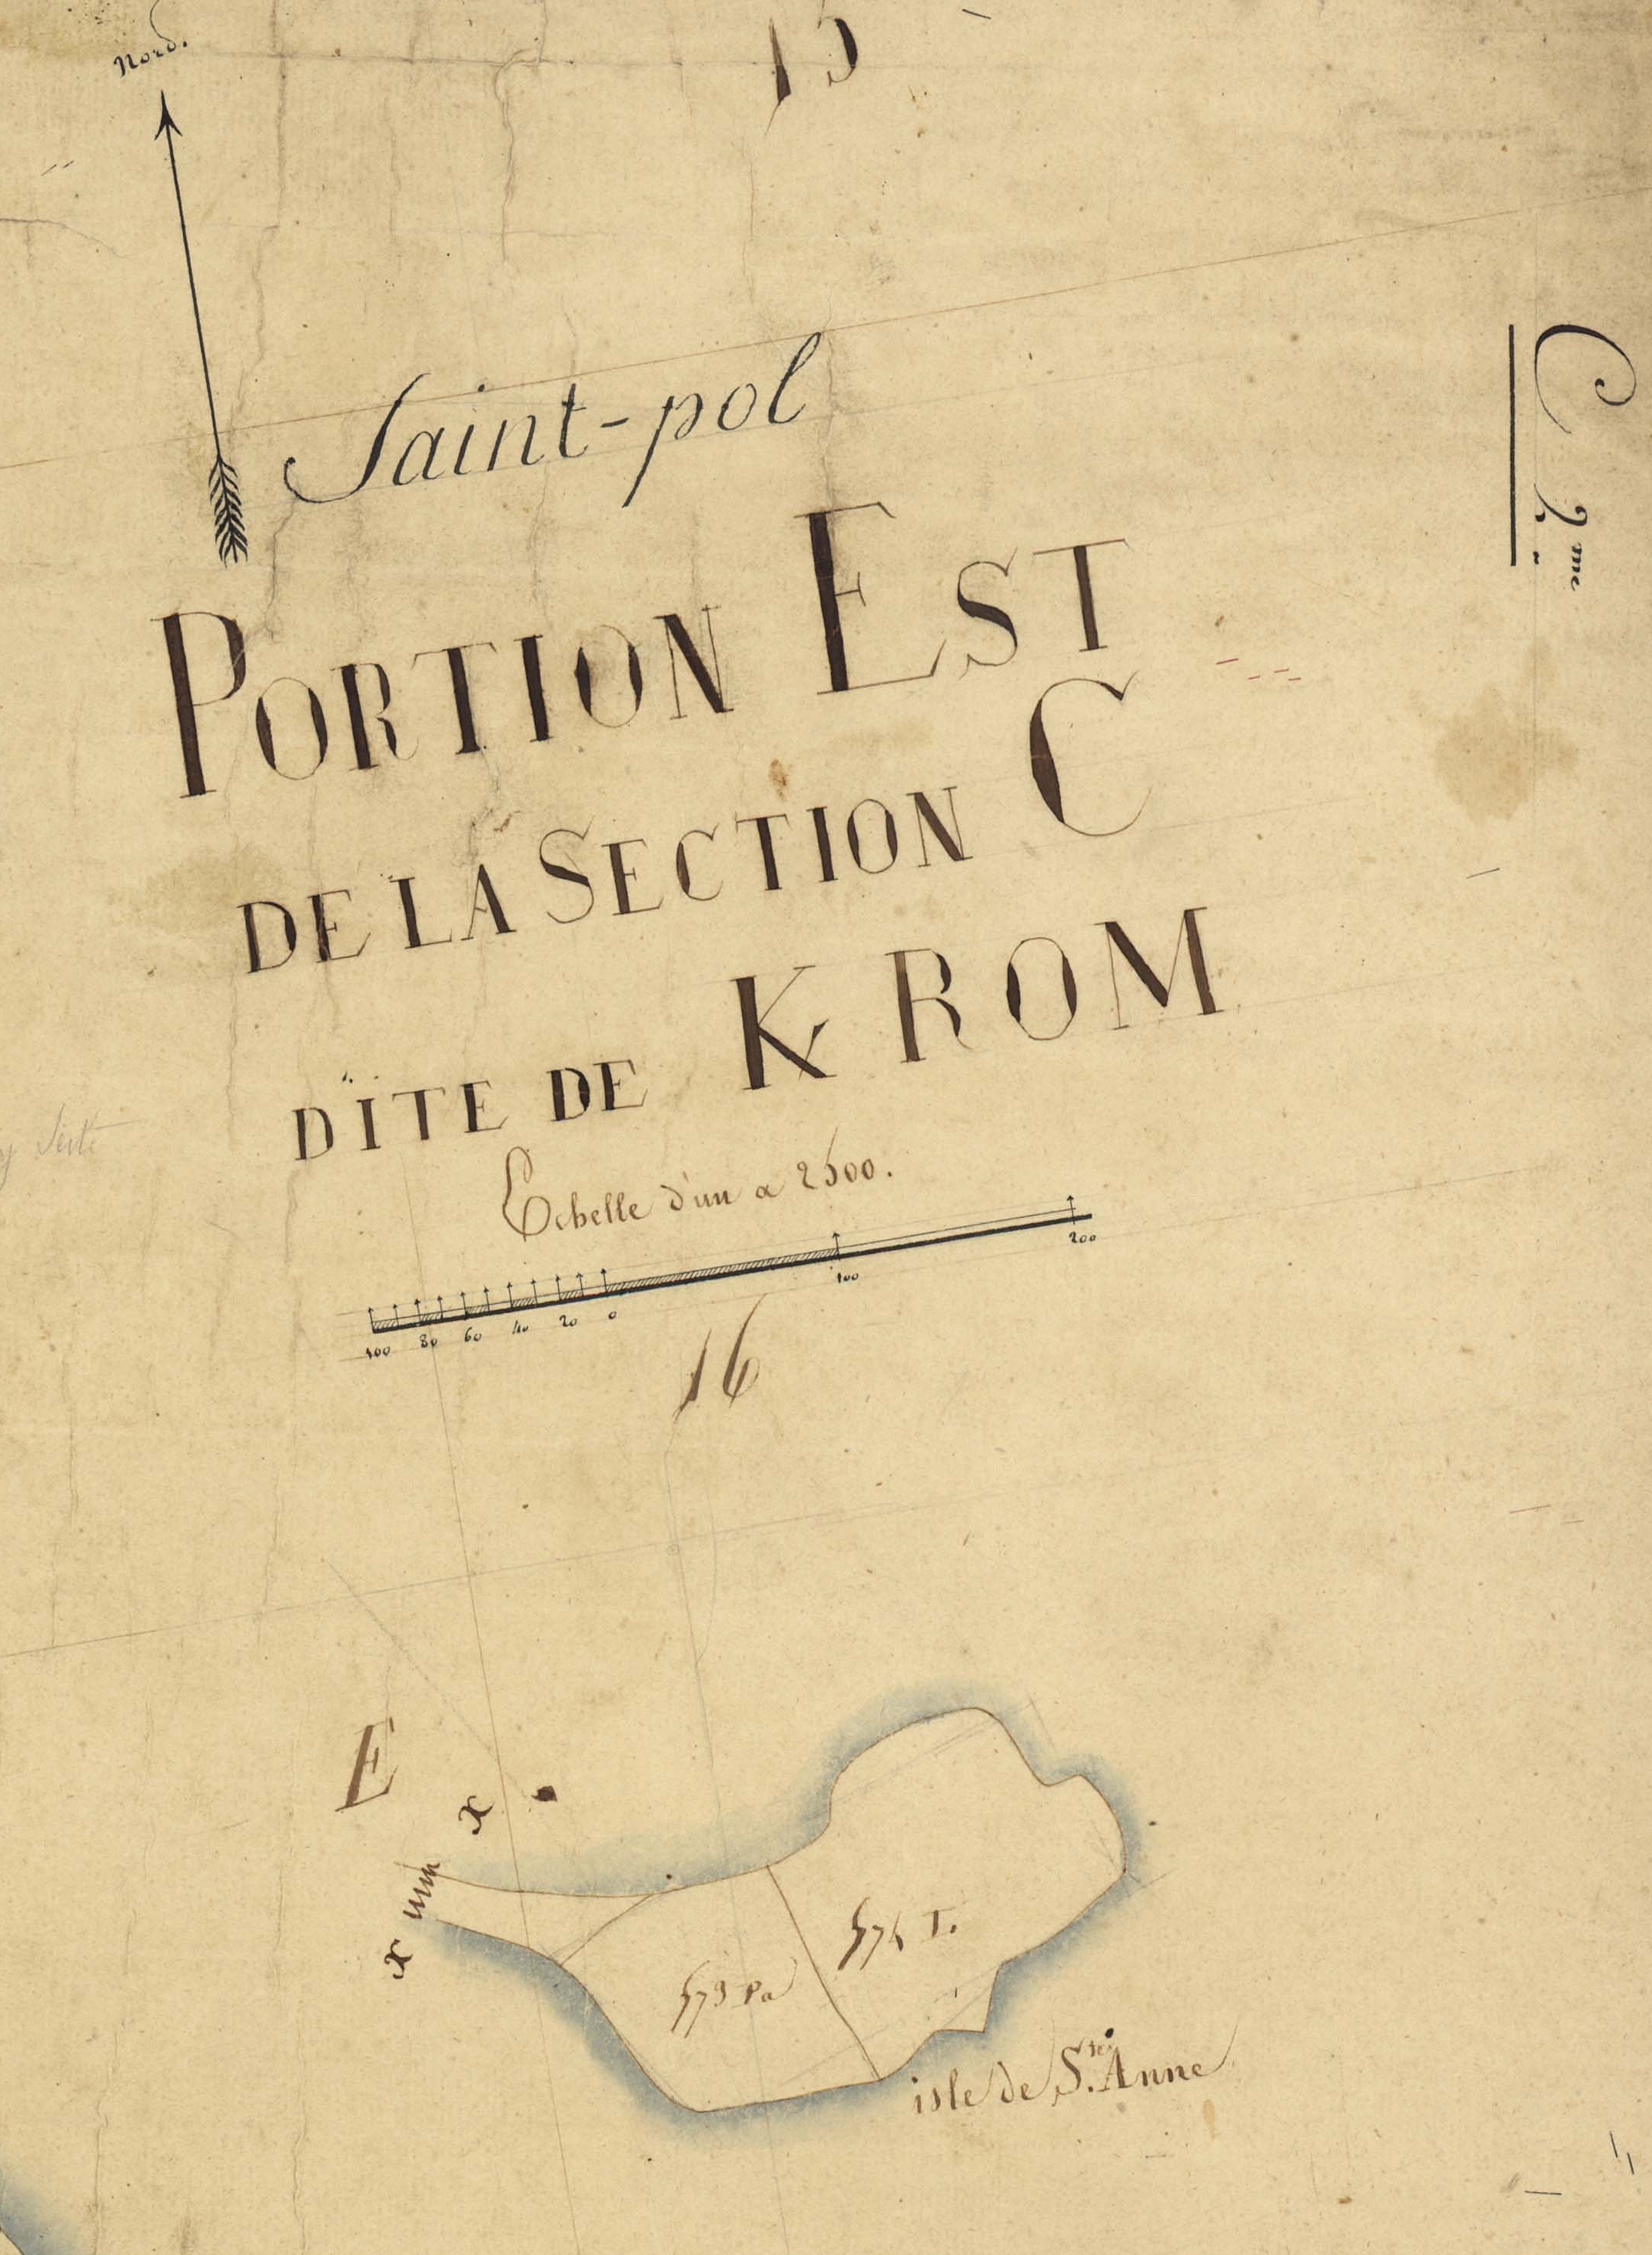 Nord.
15
Saint-pol
C 2.me
PORTION EST
DE LA SECTION C
DITE DE K ROM
Echelle d'un a 2500.
100 80 60 40 20 0 100 200
16
E
x
x
574 T.
573 Pa
isle de Ste. Anne